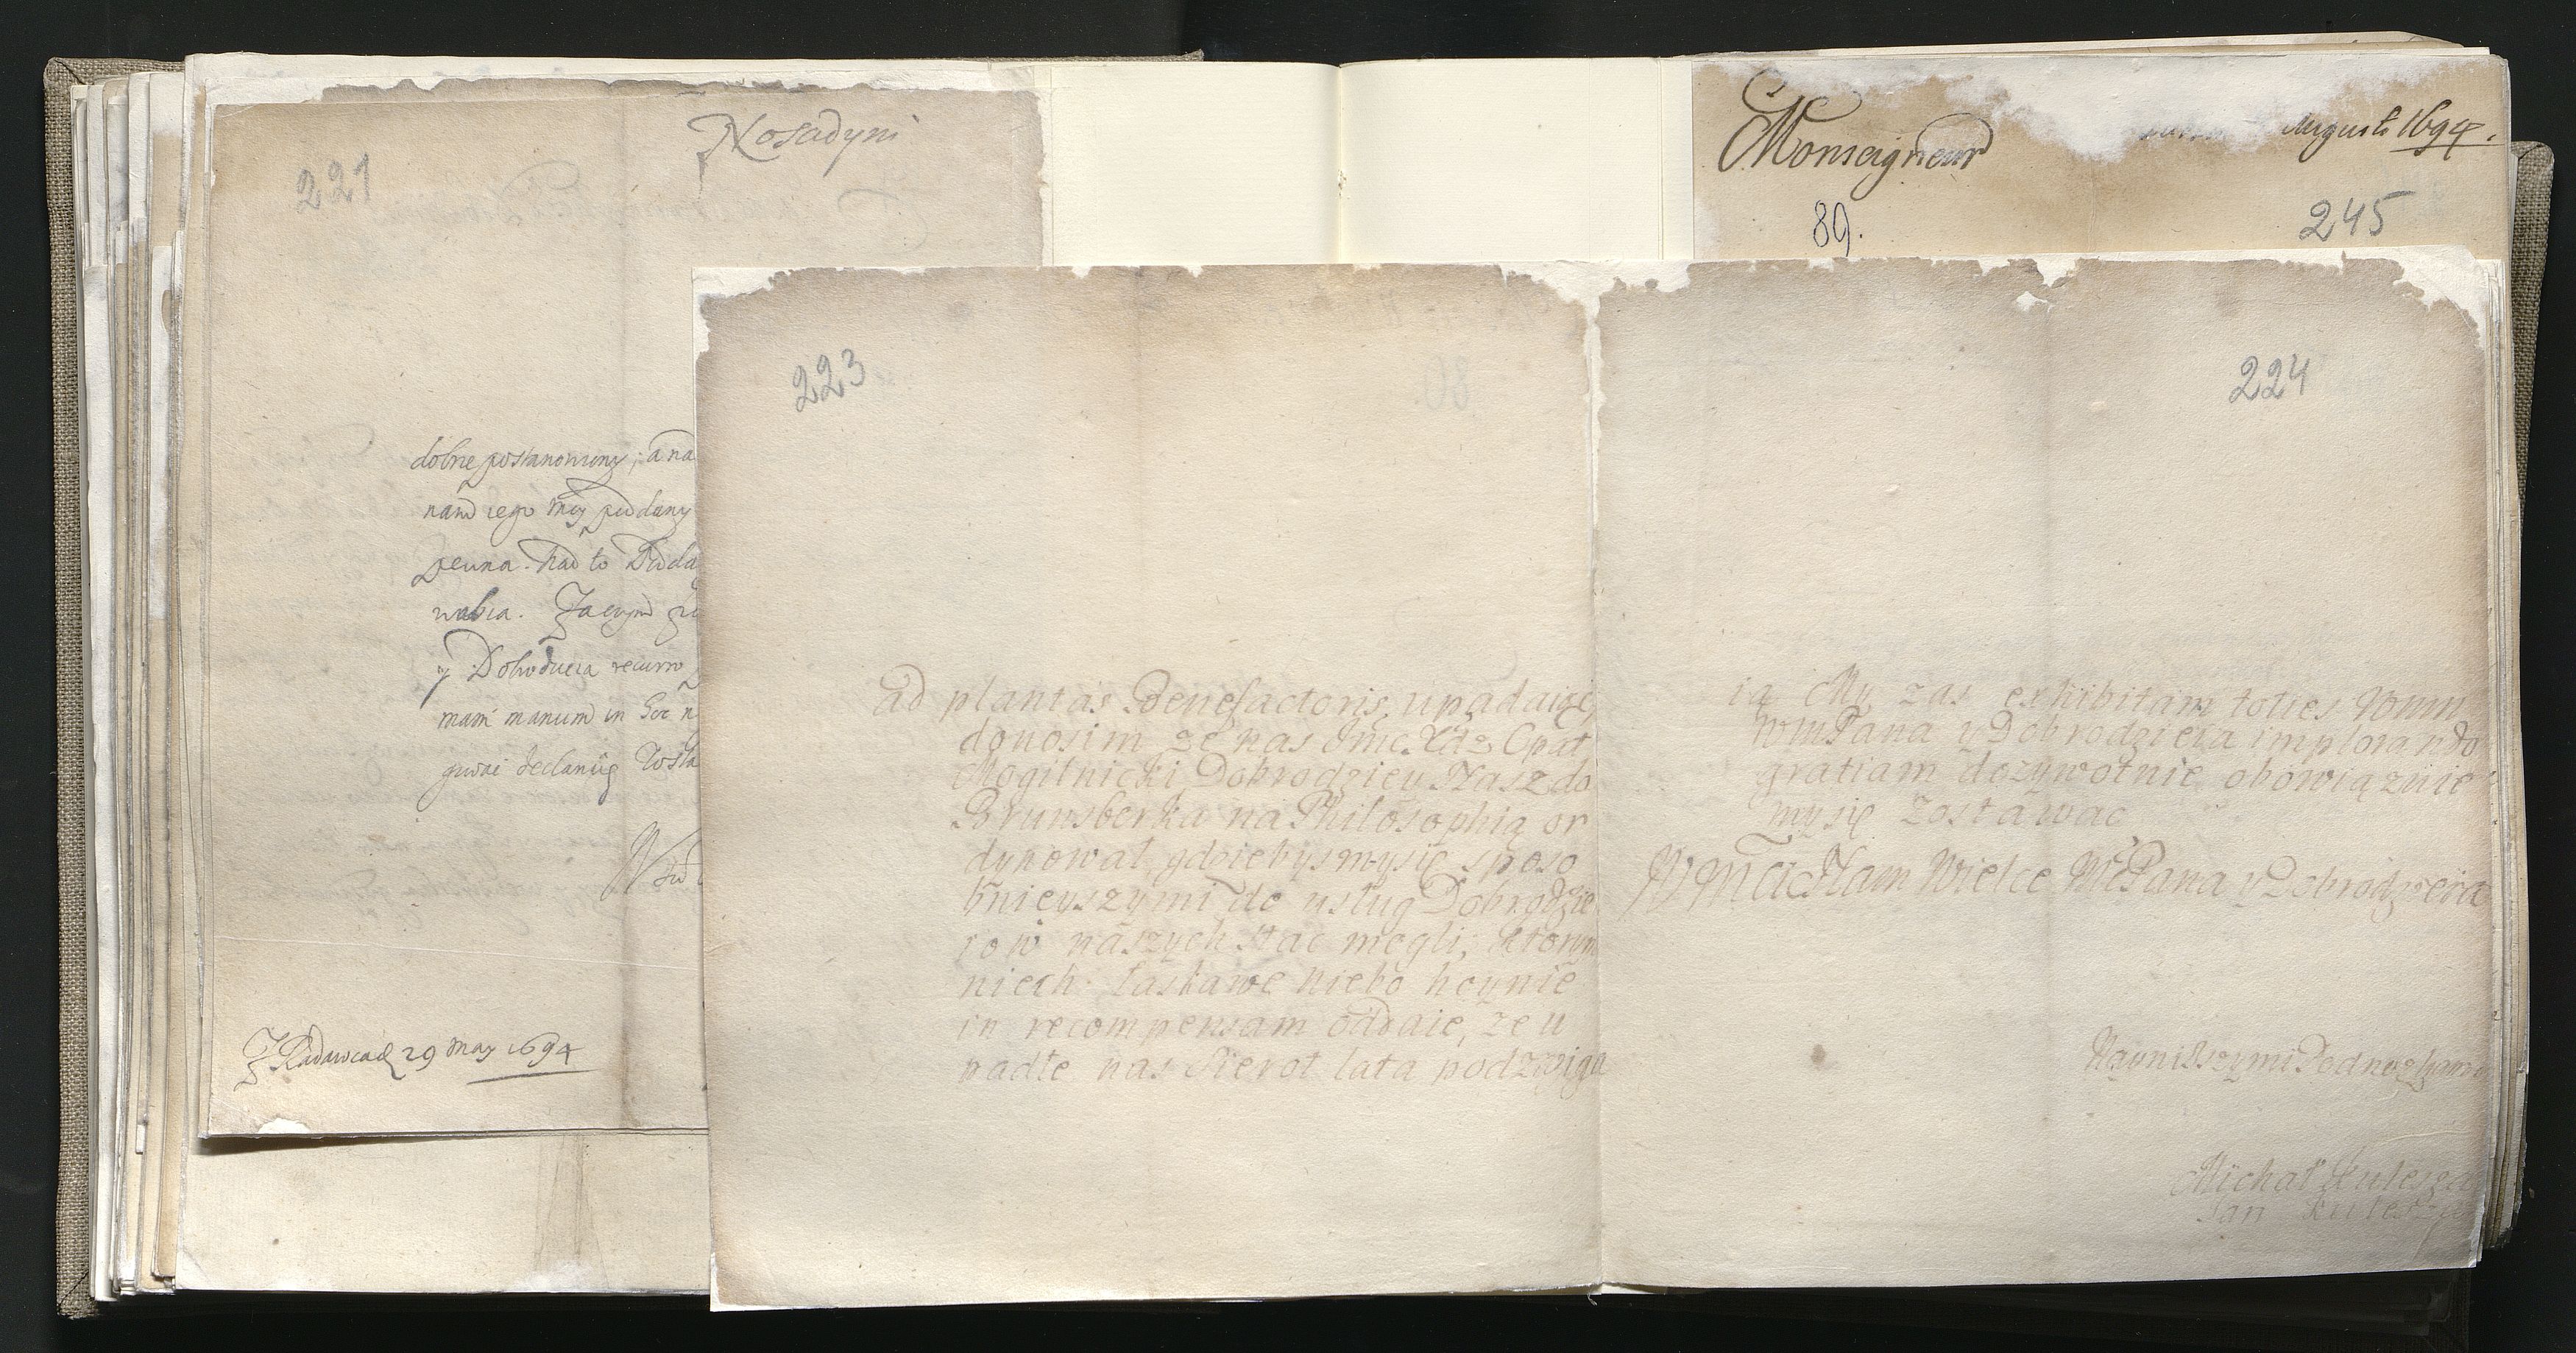 Nosadyni
221
dobrze postanowiony; a na
nam iego
pewna. nad to
wabia. Zaczym
y Dobrodzieia recurro
mam manum in
29 May 1694
Monseigneur
Augusti 1694.
89.
245
223
ad plantas Benefactoris upadaiąc,
donosim ze nas Imc Xdz Opat
Mogilnicki Dobrodziey Nasz do
Brunsberka na Philosophią or
dynował, gdziebysmysię sposo
bnieyszymi do usług Dobrodzie
iow naszych stac mogli, ktorym
niech łaskawe niebo hoynie
in recompensam oddaie, ze u
padłe nas Sierot lata podzwiga
224
ią My zas exhibitam toties Wmm
WmPana y Dobrodzieia implorando
gratiam dozywotnie obowiązuie
mysię zostawac
Wielce MPana y Dobrodzieia
Nayniszszymi Podnozkami
Michał Kulesza
Jan Kulesza